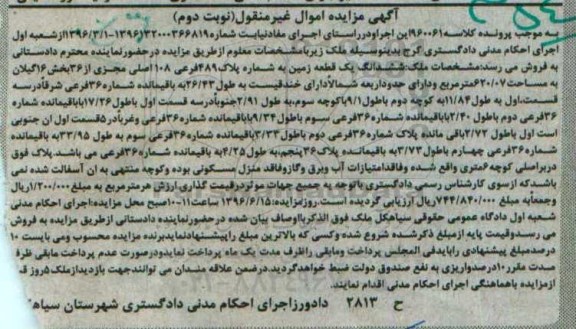 آگهی مزایده اموال غیرمنقول(نوبت دوم)
به موجب پرونده کلاسه۹۶۰۰۶۱ این اجرا درراستای اجرای مفاد نیابت شماره ۳۲۰۰۰۳۶۶۸۱۹(۱۳۹۶/۳/۱-۱۳۹۶) ازشعبه اول
اجرای احکام مدنی دادگستری کرج بدینوسیله ملک زیر بامشخصات معلوم ازطریق مزایده درحضورنماینده محترم دادستانی
به فروش می رسد:مشخصات ملک ششدانگ یک قطعه زمین به شماره پلاک۴۸۹فرعی ۱۰۸ اصلی مجزی از۳۶بخش۱۶گیلان
به مساحت۶۲۰/۰۷مترمربع ودارای حدوداربعه شمالاًدارای خندقیست به طول۲۶/۴۳به باقیمانده شماره۳۶فرعی شرقاًدرسه
قسمت،اول به طول۱۱/۸۴به کوچه دوم باطول۹/۱باکوچه سوم،به طول ۲/۹۱ جنوباًدرسه قسمت اول باطول۱۷/۲۶باباقیمانده شماره
۳۶فرعی دوم باطول ۲/۴۰باباقیمانده شماره۳۶فرعی سوم باطول۹/۳۴باباقیمانده شماره۳۶فرعی وغرباًدر۵قسمت اول ان جنوبی
است اول باطول ۲/۷۲باقی مانده پلاک شماره۳۶فرعی دوم باطول۳/۳۳باباقیمانده شماره۳۶فرعی سوم به طول ۳۳/۹۵به باقیمانده
شماره۳۶فرعی چهارم باطول۳/۷۳به باقیمانده پلاک۳۶پنجم،به طول۴/۲۵به باقیمانده شماره۳۶فرعی می باشد.پلاک فوق
دربراصلی کوچه۶متری واقع شده وفاقدامتیازات آب وبرق وگازوفاقد منزل مسکونی بوده وکوچه منتهی به ان آسفالت شده نمی
باشدکه ازسوی کارشناس رسمی دادگستری باتوجه به جمیع جهات موثردرقیمت گذاری.ارزش هرمترمربع به مبلغ ۱/۲۰۰/۰۰۰ریال
وجمعابه مبلغ ۷۴۴/۸۴۰/۰۰۰ریال ارزیابی گردیده است.روزمزایده:۱۳۹۶/۶/۱۵ ساعت۱۱-۱۰صبح محل مزایده:اجرای احکام مدنی
شعبه اول دادگاه عمومی حقوقی سیاهکل ملک فوق الذکرباواصاف بیان شده درحضورنماینده دادستانی ازطریق مزایده به فروش
می رسدوقیمت پایه ازمبلغ ذکرشده شروع شده وکسی که بالاترین مبلغ راپیشنهادنمایدبرنده مزایده محسوب ومی بایست ۱۰
درصدمبلغ پیشنهادی رابایدفی المجلس پرداخت ومابقی راظرف مدت یک ماه پرداخت نمایدودرصورت عدم پرداخت مابقی ظرف
مدت مقرر۱۰درصدواریزی به نفع صندوق دولت ضبط خواهدگردید.درضمن علاقه مندان می توانندجهت بازدیدازملک۵روز قبل
ازمزایده باهماهنگی اجرای احکام مدنی اقدام نمایند.
ح ۲۸۱۳ دادورزاجرای احکام مدنی دادگستری شهرستان